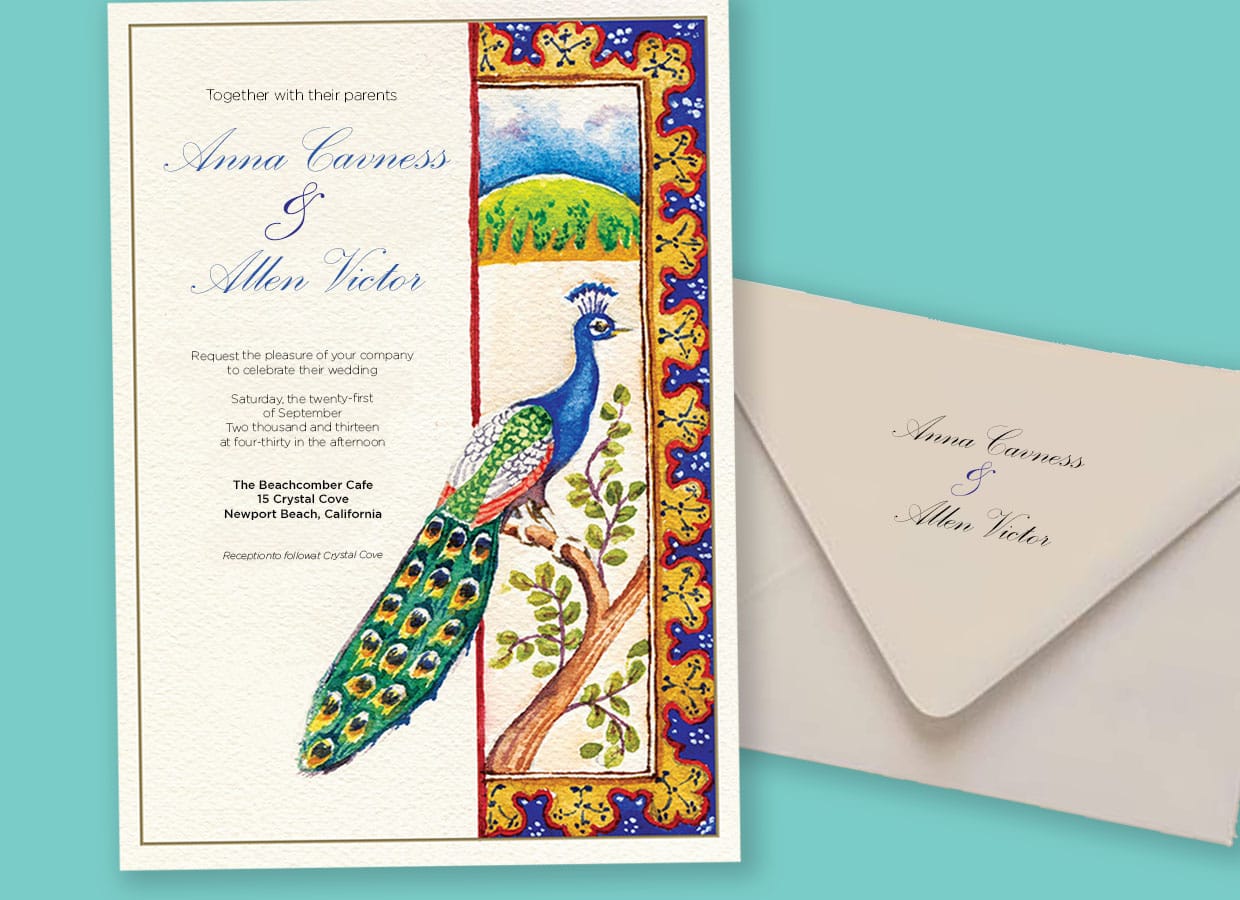 Together with their parents
Anna Cavness
&
Allen Victor
Request the pleasure of your company
to celebrate their wedding
Saturday, the twenty-first
of September
Two thousand and thirteen
at four-thirty in the afternoon
The Beachcomber Cafe
15 Crystal Cove
Newport Beach, California
Receptionto followat Crystal Cove
Anna Cavness
&
Allen Victor